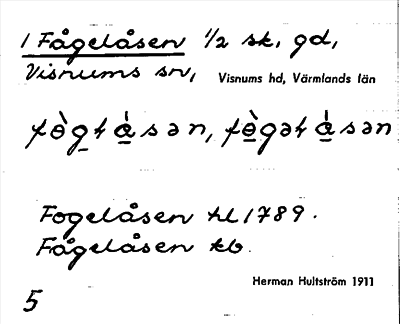 1 Fågelåsen 1/2 sk, gd,
Visnums sn, Visnums hd, Värmlands län
Fogelåsen hl 1789.
Fågelåsen kb.
Herman Hultström 1911
5